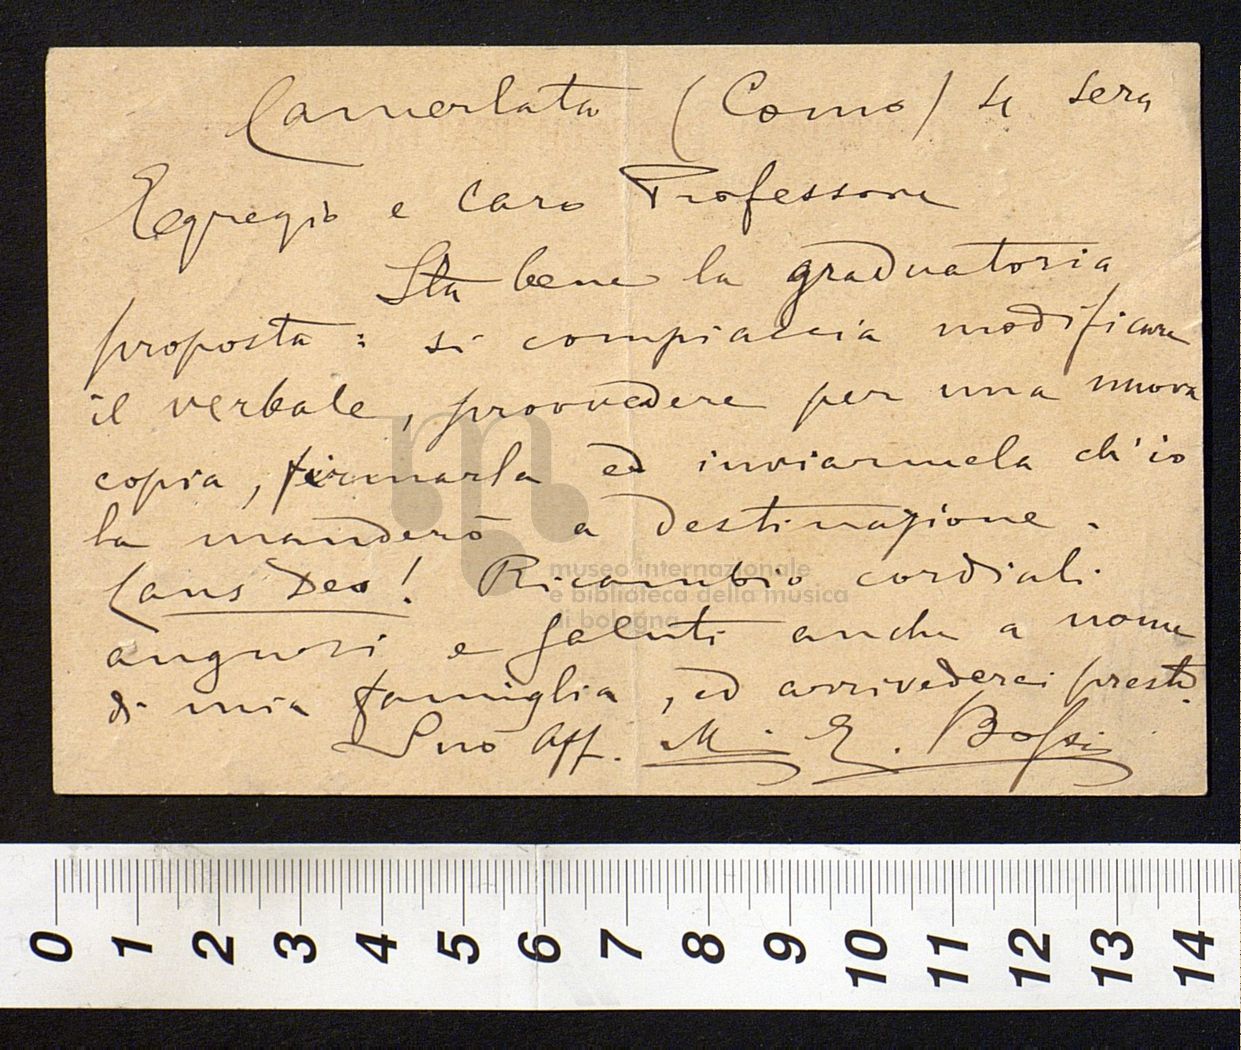 Camerlata (Como) sera
Egregio e caro Professore
Sta bene la graduatoria
proposta : si compiaccia modificare
il verbale, provvedere per una nuova
copia, firmarla ed inviarmela ch'io
la manderò a destinazione.
Laus Deo! Ricambio cordiali
auguri e saluti anche a nome
di mia famiglia, ed arrivederci presto.
Suo Aff. M. E. Bossi
museo internazionale
e biblioteca della musica
di bologna
0 1 2 3 4 5 6 7 8 9 10 11 12 13 14